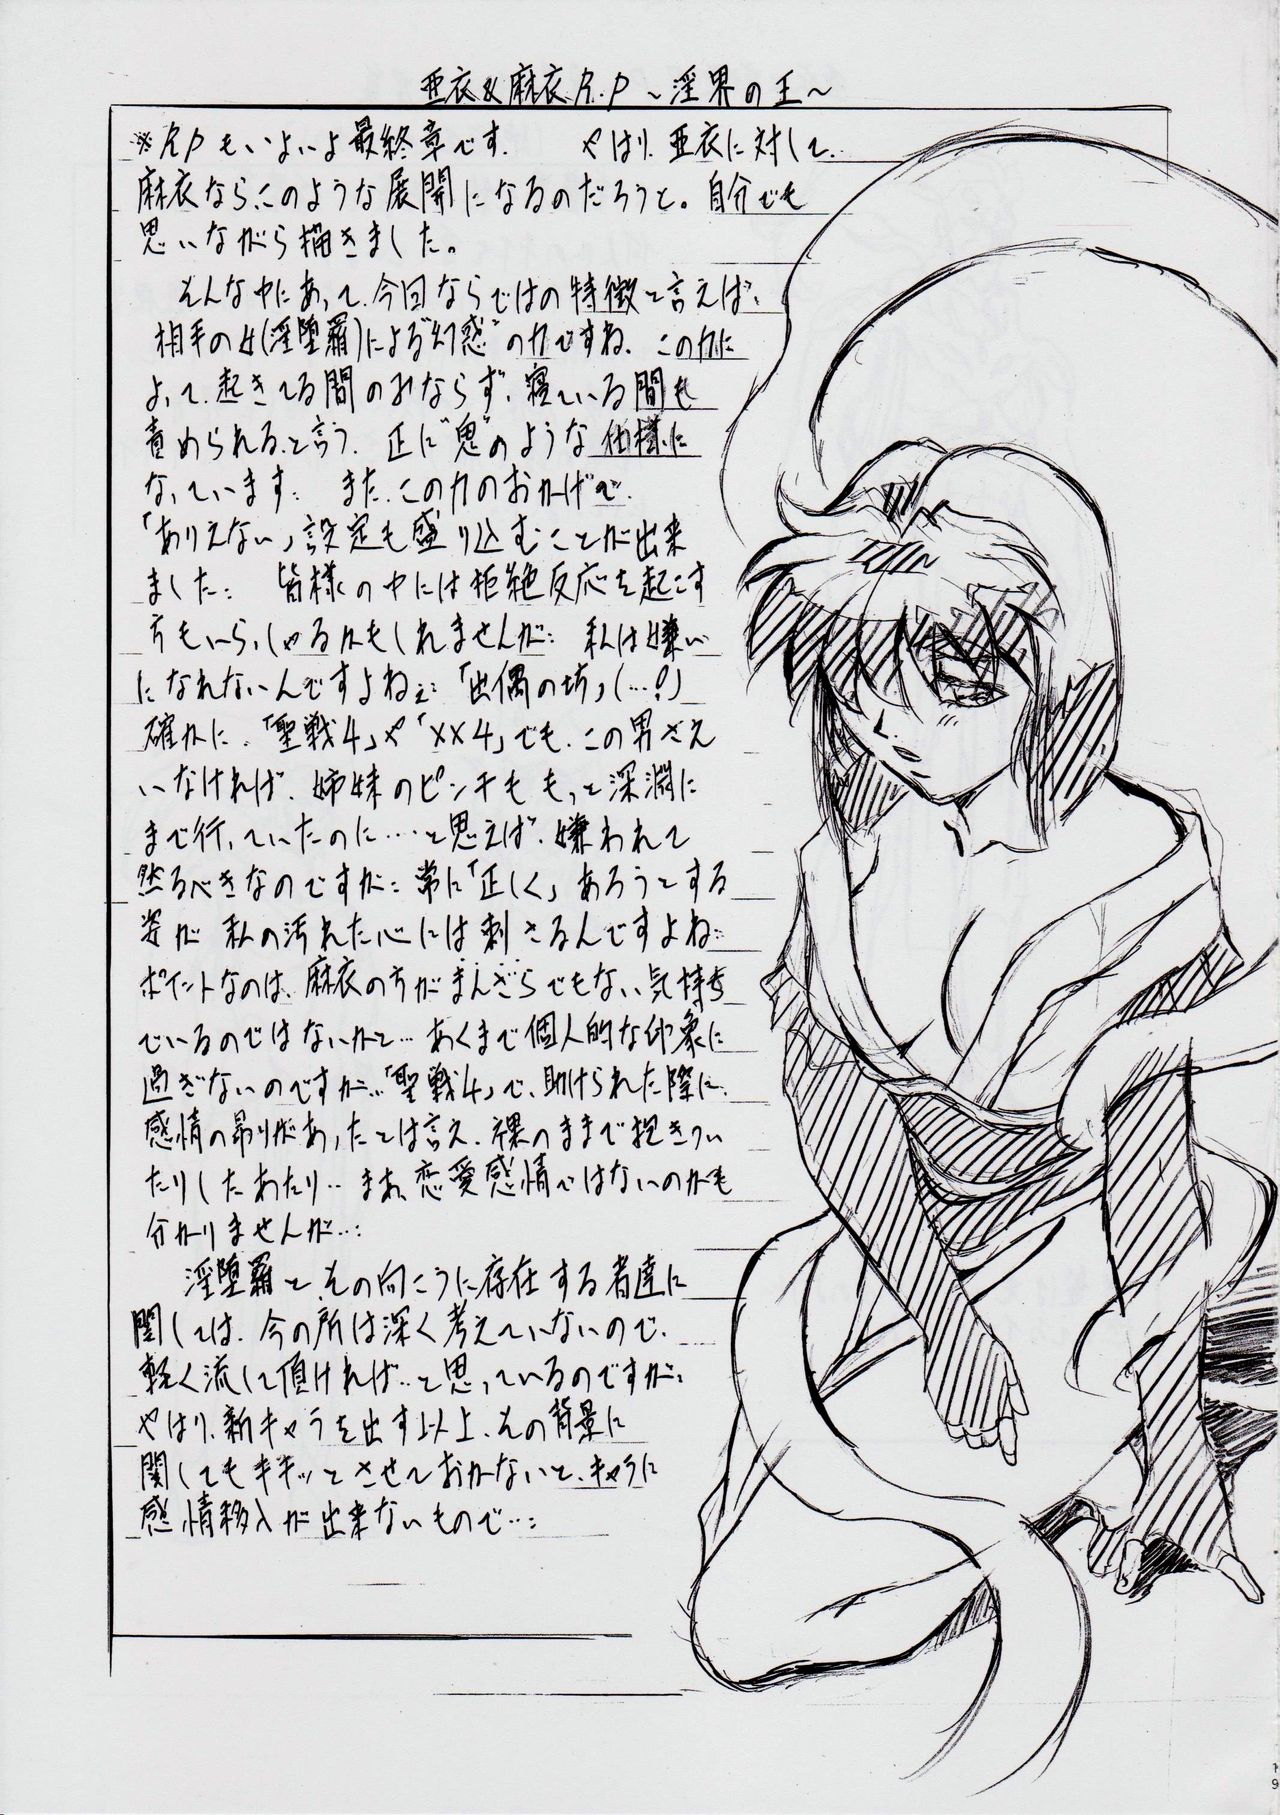 亜衣&麻衣R.P〜淫界の王〜
※R.Pもいよいよ最終章です. やはり、亜衣に対して、
麻衣なら、このような展開になるのだろうと。自分でも
思いながら描きました。
そんな中にあって、今回ならではの特徴と言えば、
相手の女(淫堕羅)による"幻惑"の力ですね、この力に
よって、起きてる間のみならず、寝ている間も
責められると言う、正に"鬼"のような仕様に
なっています: また、この力のおかげで、
「ありえない」設定も盛り込むことが出来
ました: 皆様の中には拒絶反応を起こす
方もいらっしゃるかもしれませんが: 私は嫌い
になれないんですよねぇ:「出偶の坊」(…?)
確かに、「聖戦4」や「××4」でも、この男さえ
いなければ、姉妹のピンチももっと深淵に
まで行っていたのに…と思えば、嫌われて
然るべきなのですが: 常に「正しく」あろうとする
姿が 私の汚れた心には刺さるんですよね:
ポイントなのは、麻衣の方がまんざらでもない気持ち
でいるのではないかと…あくまで個人的な印象に
過ぎないのですが…「聖戦4」で、助けられた際に、
感情の昂りがあったとは言え、裸のままで抱きつい
たりしたあたり…まあ、恋愛感情ではないのかも
分かりませんが…:
淫堕羅と、その向こうに存在する者達に
関しては、今の所は深く考えていないので、
軽く流して頂ければ…と思っているのですが:
やはり、新キャラを出す以上、その背景に
関してもキチッとさせておかないと、キャラに
感情移入が出来ないもので…:
19